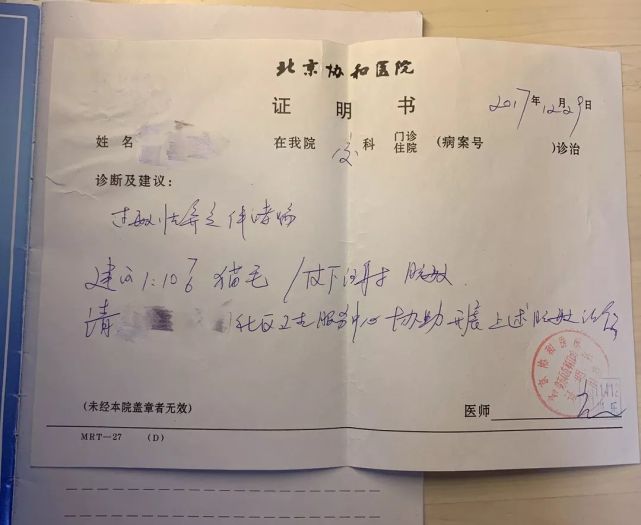 北京协和医院
证明书
2017年12月29日
姓名 在我院 变 科 门诊 住院 (病案号 )诊治
诊断及建议:
过敏性鼻炎伴哮喘
建议 1:10⁶ 猫毛 皮下注射 脱敏
请 社区卫生服务中心协助开展上述脱敏治疗
(未经本院盖章者无效)
医师
MRT—27 (D)